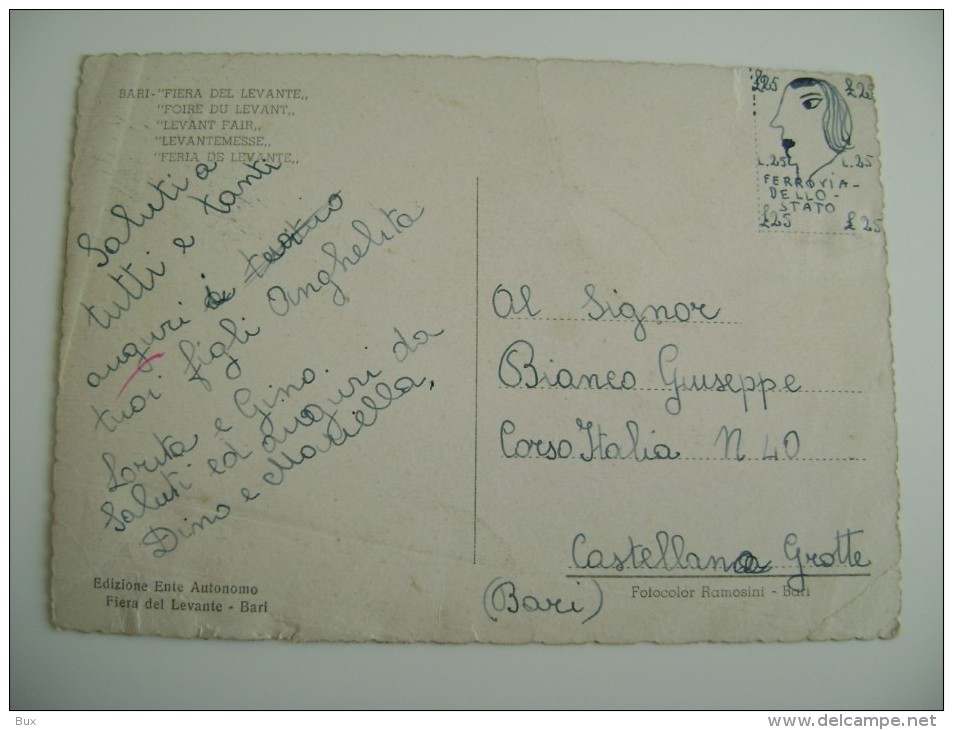 BARI-"FIERA DEL LEVANTE,,
"FOIRE DU LEVANT,,
"LEVANT FAIR,,
"LEVANTEMESSE,,
"FERIA DE LEVANTE,,
Saluti a
tutti e tanti
auguri
tuoi figli Anghelita
Lorita e Gino.
Saluti ed auguri da
Dino e Mariella,
Edizione Ente Autonomo
Fiera del Levante - Bari
£25 £25
L.25 L.25
FERROVIA-
DELLO-
STATO
£25 £25
Al Signor
Bianco Giuseppe
Corso Italia N 40
Castellana Grotte
(Bari)
Fotocolor Ramosini - Bari
Bux
http://www.delcampe.net